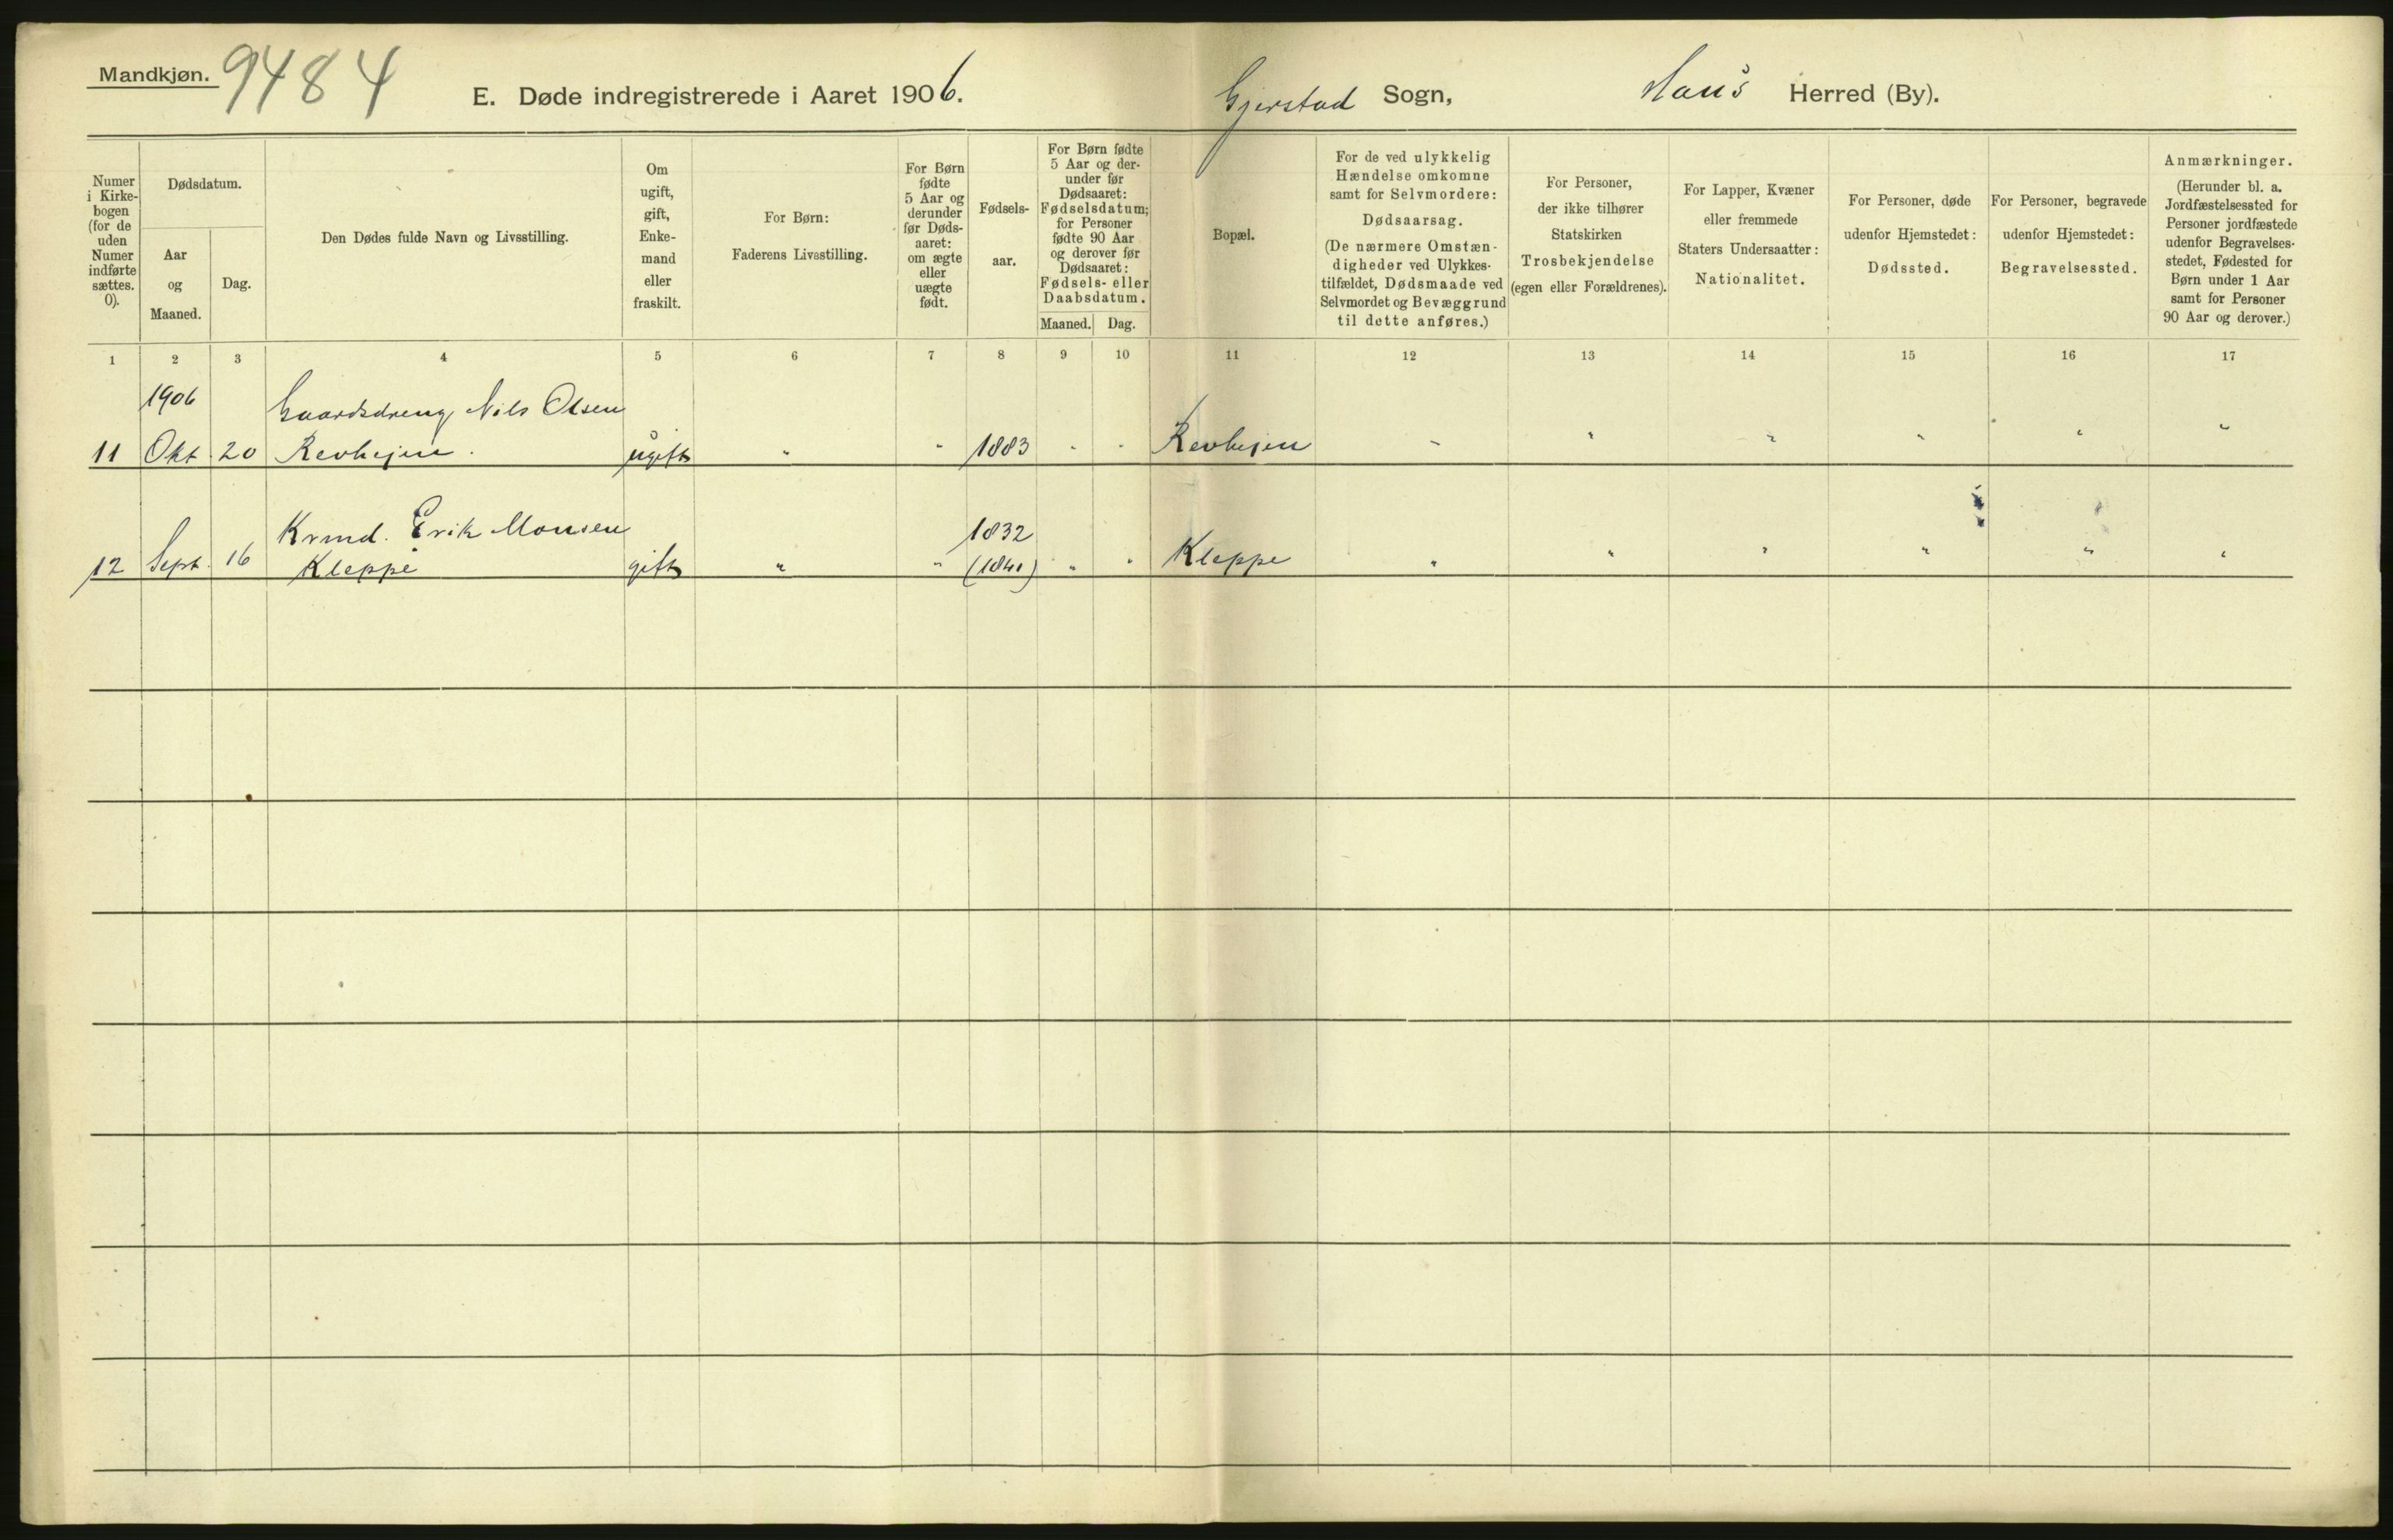 Mandkjøn. 9484
E. Døde indregistrerede i Aaret 1906. Gjerstad Sogn, Haus Herred (By).
Numer
i Kirke-
bogen
(for de
uden
Numer
indførte
sættes.
0).
Dødsdatum.
Aar
og
Maaned.
Dag.
Den Dødes fulde Navn og Livsstilling.
Om
ugift,
gift,
Enke-
mand
eller
fraskilt.
For Børn:
Faderens Livsstilling.
For Børn
fødte
5 Aar og
derunder
før Døds-
aaret:
om ægte
eller
uægte
født.
Fødsels-
aar.
For Børn fødte
5 Aar og der-
under før
Dødsaaret:
Fødselsdatum;
for Personer
fødte 90 Aar
og derover før
Dødsaaret:
Fødsels- eller
Daabsdatum.
Maaned. Dag.
Bopæl.
For de ved ulykkelig
Hændelse omkomne
samt for Selvmordere:
Dødsaarsag.
(De nærmere Omstæn-
digheder ved Ulykkes-
tilfældet, Dødsmaade ved
Selvmordet og Bevæggrund
til dette anføres.)
For Personer,
der ikke tilhører
Statskirken
Trosbekjendelse
(egen eller Forældrenes).
For Lapper, Kvæner
eller fremmede
Staters Undersaatter:
Nationalitet.
For Personer, døde
udenfor Hjemstedet:
Dødssted.
For Personer, begravede
udenfor Hjemstedet:
Begravelsessted.
Anmærkninger.
(Herunder bl. a.
Jordfæstelsessted for
Personer jordfæstede
udenfor Begravelses-
stedet, Fødested for
Børn under 1 Aar
samt for Personer
90 Aar og derover.)
1 2 3 4 5 6 7 8 9 10 11 12 13 14 15 16 17
1906 Gaardsdreng Nils Olsen
11 Okt 20 Revhejen. ugift " " 1883 " " Revhejen " " " " " "
Krmd. Erik Monsen 1832
12 Sept. 16 Kleppe gift " " (1841) " " Kleppe " " " " " "